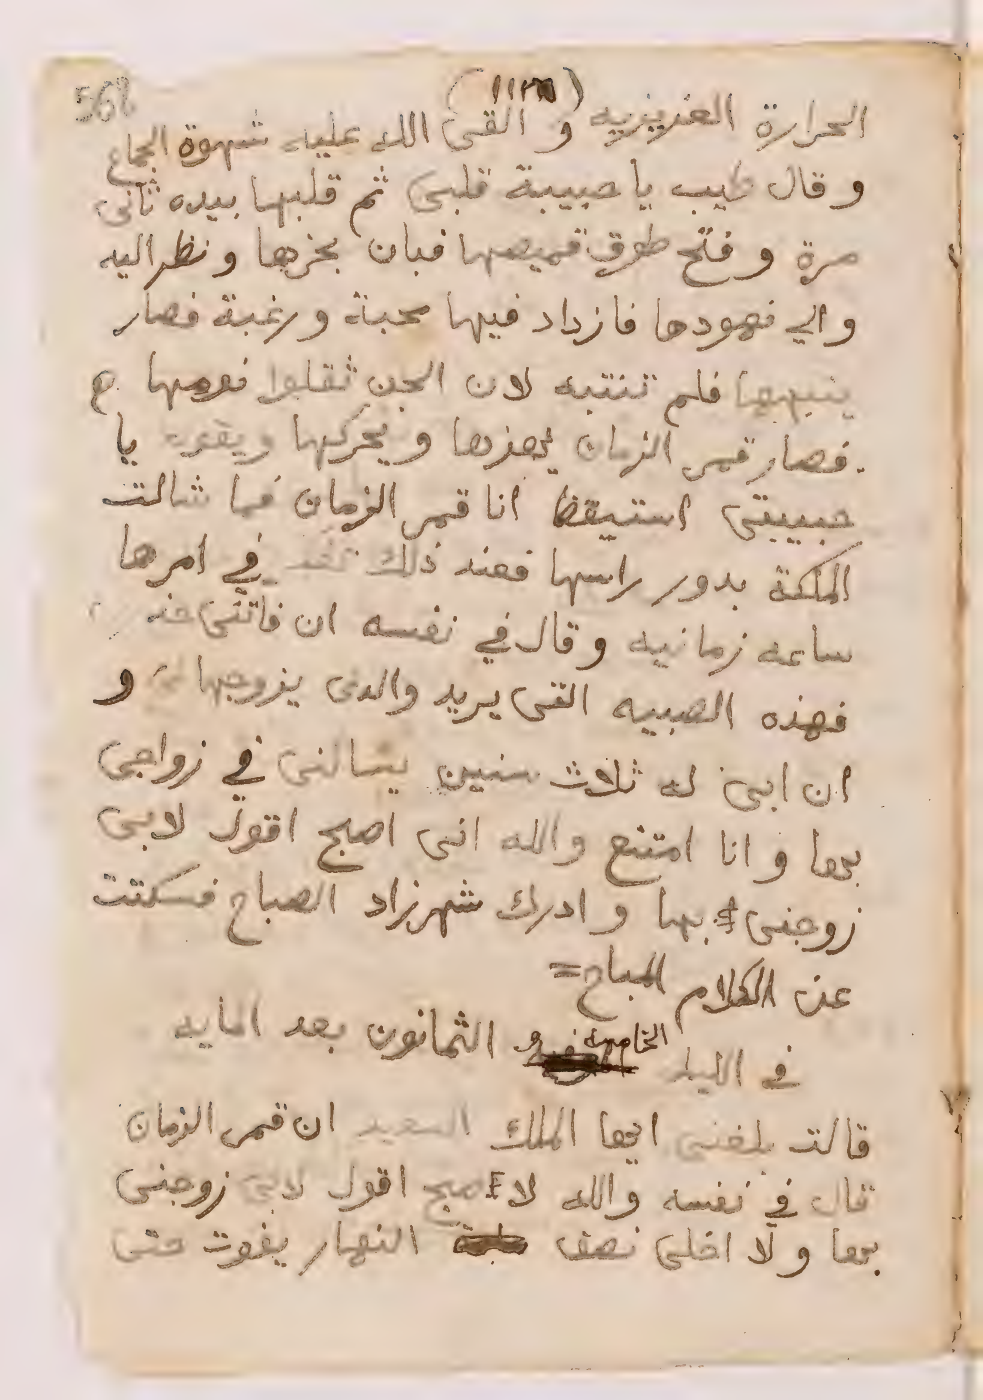 568
الحرارة الغزيزيه و القى الله عليه شهوة الجماع
و قال طيب يا حبيبة قلبى ثم قلبها بيده ثانى
مرة و فتح طوق قميصها فبان بخرها و نظر اليه
و الي نهودها فازداد فيها محبة و رغبة فصار
ينبهها فلم تنتبه لان الجن ثقلوا نومها
فصار قمر الزمان يهزها و يحركها و يقول يا
حبيبتى استيقظى انا قمر الزمان فما شالت
الملكة بدور راسها فعند ذلك في امرها
ساعه زمانيه و قال في نفسه ان
فهذه الصبيه التى يريد والدى يزوجها لى و
ان ابى له ثلاث سنين يسالنى في زواجى
بها و انا امتنع والله انى اصبح اقول لابى
زوجنى بها و ادرك شهرزاد الصباح فسكتت
عن الكلام المباح =
فى الليلة الخامسه و الثمانون بعد المايه
قالت بلغنى ايها الملك السعيد ان قمر الزمان
قال في نفسه والله لا اصبح اقول لابى زوجنى
بها و لا اخلى نصف النهار يفوت حتى